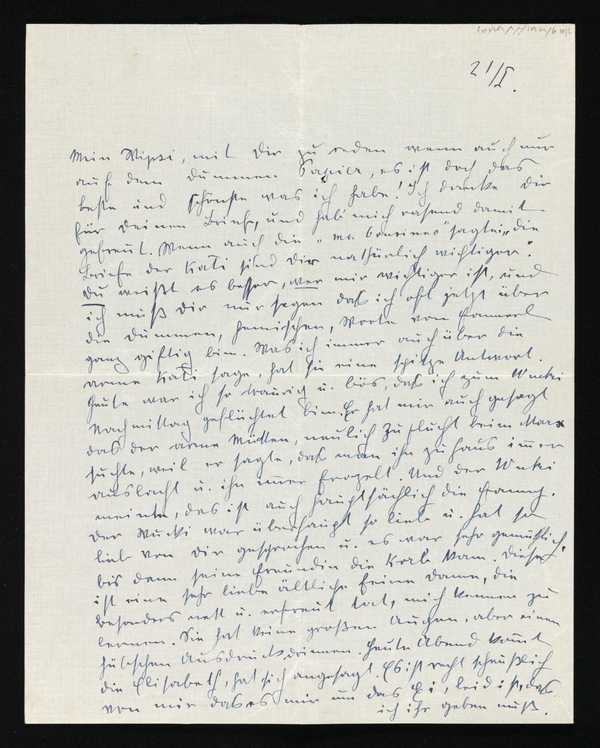 21/I.
Mein Wipsi, mit Dir zu reden wenn auch nur
auf dem dummen Papier, es ist doch das
beste und schönste was ich habe! Ich danke Dir
für Deinen Brief, und hab mich rasend damit
gefreut. Wenn auch die "ma cousine" sagte: "die
Briefe der Kati sind Dir natürlich wichtiger".
Du weißt es besser, wer mir wichtiger ist, und
ich muß Dir nur sagen daß ich oft jetzt über
die dummen, hämischen, Worte vom
ganz giftig bin. Was ich immer auch über die
arme Kati sage, hat sie eine spitze Antwort.
Heute war ich so traurig u. bös, daß ich zum Wucki
Nachmittag geflüchtet bin. Er hat mir auch gesagt
das der arme neulich Zuflucht beim Max
suchte, weil er sagte, daß man ihn zu haus immer
auslacht u. ihn immer frozelt. Und der Wucki
meinte, das ist auch hauptsächlich die
Der Wucki war überhaupt so lieb u. hat so
lieb von Dir gesprochen u. es war sehr gemütlich
bis dann seine Freundin die kam. Diese
ist eine sehr liebe ältliche feine Dame, die
besonders nett u. erfreut tat, mich kennen zu
lernen. Sie hat keine großen Augen, aber einen
hübschen Ausdruck drinnen. Heute Abend kommt
die Elisabeth, hat sich angesagt. Es ist recht scheußlich
von mir das es mir um das Ei, leid ist, das
ich ihr geben muß.